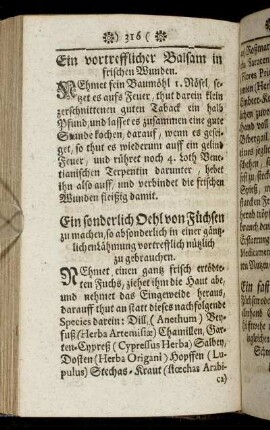 ) 316 (
Ein vortrefflicher Balsam in
frischen Wunden.
NEhmet fein Baumöhl 1. Nösel, se-
tzet es aufs Feuer, thut darein klein
zerschnittenen guten Taback ein halb
Pfund, und lasset es zusammen eine gute
Stunde kochen, darauf, wenn es gesei-
get, so thut es wiederum auff ein gelind
Feuer, und rühret noch 4. Loth Vene-
tianischen Terpentin darunter, hebet
ihn also auff, und verbindet die frischen
Wunden fleißig damit.
Ein sonderlich Oehl von Füchsen
zu machen, so absonderlich in einer gäntz-
lichen Lähmung vortrefflich nützlich
zu gebrauchen.
NEhmet einen gantz frisch ertödte-
ten Fuchs, ziehet ihm die Haut abe,
und nehmet das Eingeweide heraus,
darauff thut an statt dieses nachfolgende
Species darein: Dill, (Anethum) Bey-
fuß (Herba Artemisiæ) Chamillen, Gar-
ten-Cypreß (Cypressus Herba) Salbey,
Dosten (Herba Origani) Hopffen (Lu-
pulus) Stechas-Kraut (stœchas Arabi-
ca)